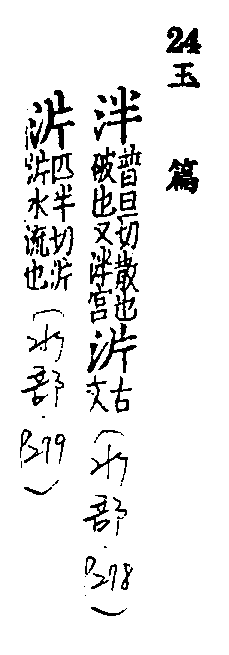 24 玉篇
泮 普旦切散也破也又泮宮 泮 古文(水部.P.278)
沜 匹半切沜沜水流也(水部.P.279)